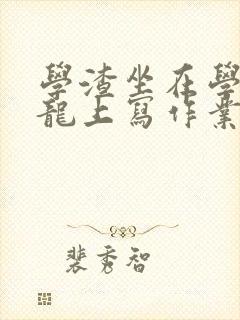 學渣坐在學
龍上寫作業
裴秀智